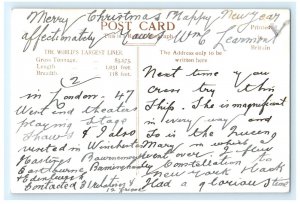 Merry Christmas Happy New Year
POST CARD
affectionately yours Wm C Learmine
Britain
THE WORLD'S LARGEST LINER
Gross Tonnage, 83,673
Length 1,031 feet
Breadth 118 feet
The Address only to be
written here
(2
in London. 47
West end theaters
playing Stage
Shows & I also
visited in Winchester
Hastings Bournemouth
Eastbourne Birmingham
& Edinburgh &
Contacted 3 relations &
12 friends
Next time you
cross try this
Ship. She is magnificent
in every way and
So is the Queen
Mary in which I
went over. I flew
by Constellation to
New York Back
Had a glorious time